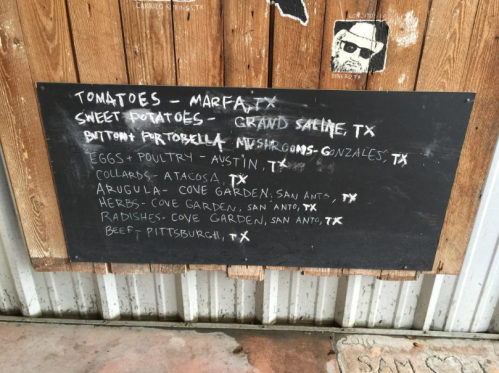 TOMATOES - MARFA, TX
SWEET POTATOES - GRAND SALINE, TX
BUTTON + PORTOBELLA MUSHROOMS - GONZALES, TX
EGGS + POULTRY - AUSTIN, TX
COLLARDS - ATACOSA, TX
ARUGULA - COVE GARDEN, SAN ANTS, TX
HERBS - COVE GARDEN, SAN ANTO, TX
RADISHES - COVE GARDEN, SAN ANTO, TX
BEEF - PITTSBURGH, TX
SAM